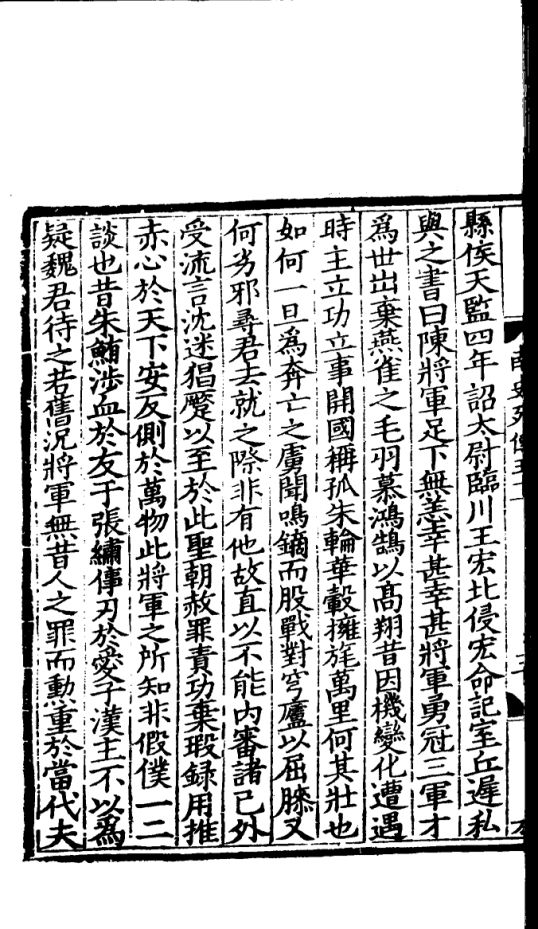 縣侯天監四年詔太尉臨川王宏北侵宏命記室丘遲私
與之書曰陳將軍足下無恙幸甚幸甚將軍勇冠三軍才
爲世出棄燕雀之毛羽慕鴻鵠以髙翔昔因機變化遭遇
時主立功立事開國稱孤朱輪華轂擁旄萬里何其壯也
如何一旦爲奔亡之虜聞鳴鏑而股戰對穹廬以屈膝又
何劣邪尋君去就之際非有他故直以不能内審諸已外
受流言沈迷猖蹷以至於此聖朝赦罪責功棄瑕録用推
赤心於天下安反側於萬物此將軍之所知非假僕一二
談也昔朱鮪涉血於友于張繡倳刃於愛子漢主不以爲
疑魏君待之若舊况將軍無昔人之罪而勲重於當代夫